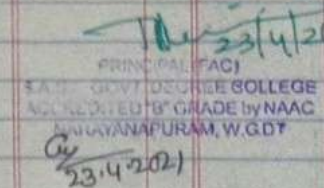 23/4/2
PRINCIPAL (FAC)
GOVT DEGREE COLLEGE
ACCREDITED "B" GRADE by NAAC
NARAYANAPURAM, W.G.DT
23.4.2021